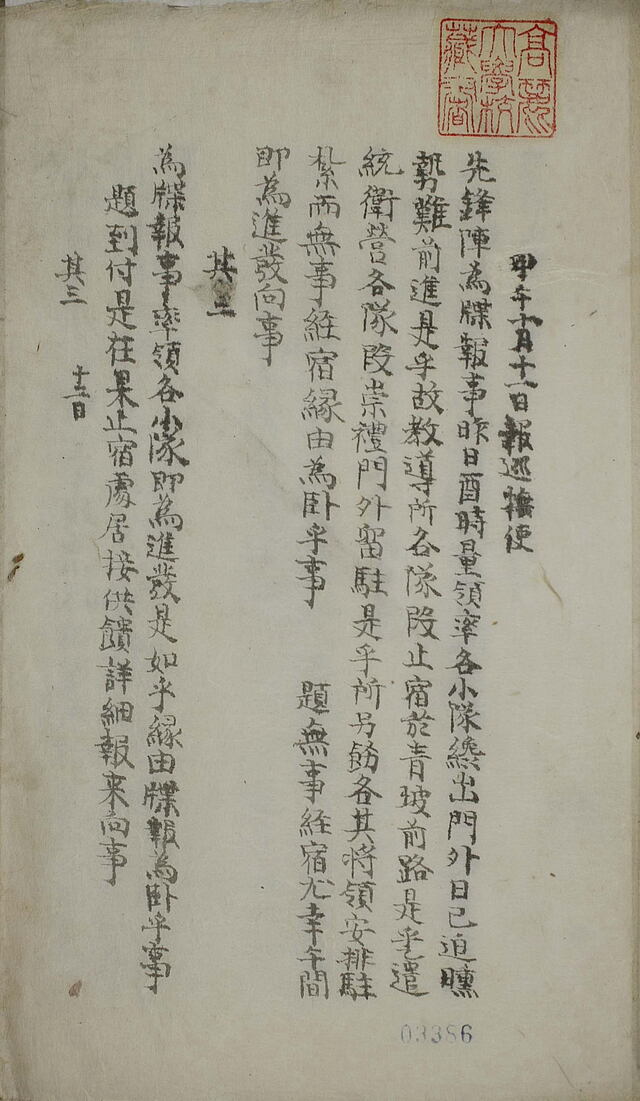 甲午十月十一日報巡撫使
先鋒陣為牒報事昨日酉時量領率各小隊纔出門外日已迫曛
勢難前進是乎故教導所各隊段止宿於青坡前路是乎遣
統衛營各隊段崇禮門外留駐是乎所另飭各其將領安排駐
紮而無事経宿緣由為卧乎事 題無事経宿尤幸午間
即為進發向事
其二
為牒報事率領各小隊即為進發是如乎緣由牒報為卧乎事
題到付是在果止宿處居接供饋詳細報来向事
其三 十二日
高麗大學校藏書
03386